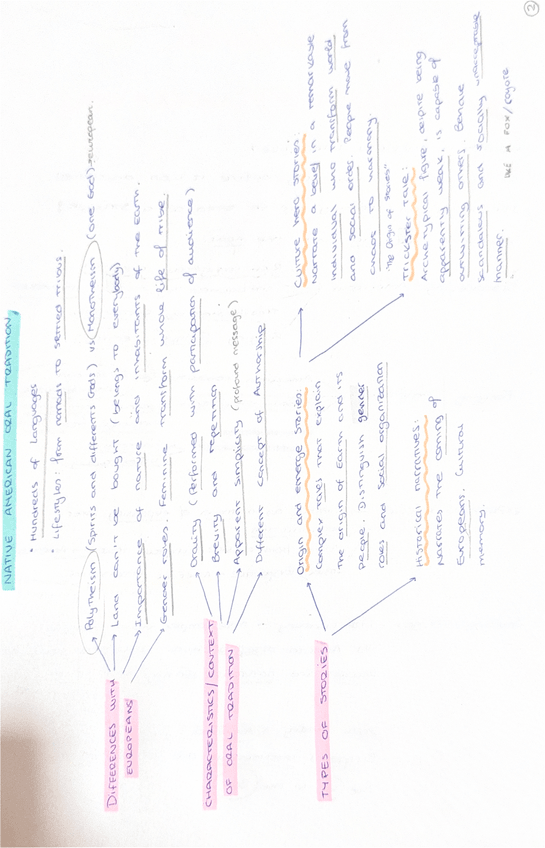 2
NATIVE AMERICAN ORAL TRADITION
• Hundreds of languages
• Lifestyles: from nomads to settled tribus.
DIFFERENCES WITH
EUROPEANS
Polytheism (Spirits and differents Gods) vs Monotheism (one God)→european.
Land can't be bought (belongs to everybody)
Importance of nature and inhabitants of the Earth.
Gender roles. Feminine transform whole life of tribe.
CHARACTERISTICS/CONTEXT
OF ORAL TRADITION
Orality (Performed with participation of audience)
Brevity and repetition
Apparent simplicity (profound message)
Different concept of Authorship
TYPES OF STORIES
Origin and emerge stories:
Complex tales that explain
the origin of Earth and its
people. Distinguish gender
roles and social organization
Historical narratives:
Narrates the coming of
Europeans. Cultural
memory.
Culture hero stories:
Narrate a being in a remarkable
individual who transform world
and social order. People move from
chaos to harmony
"The Origin of Stories"
Trickster tale:
Archetypical figure, despite being
apparently weak, is capable of
outwitting others. Behave
scandalous and socially unacceptable
manner.
like a fox/coyote